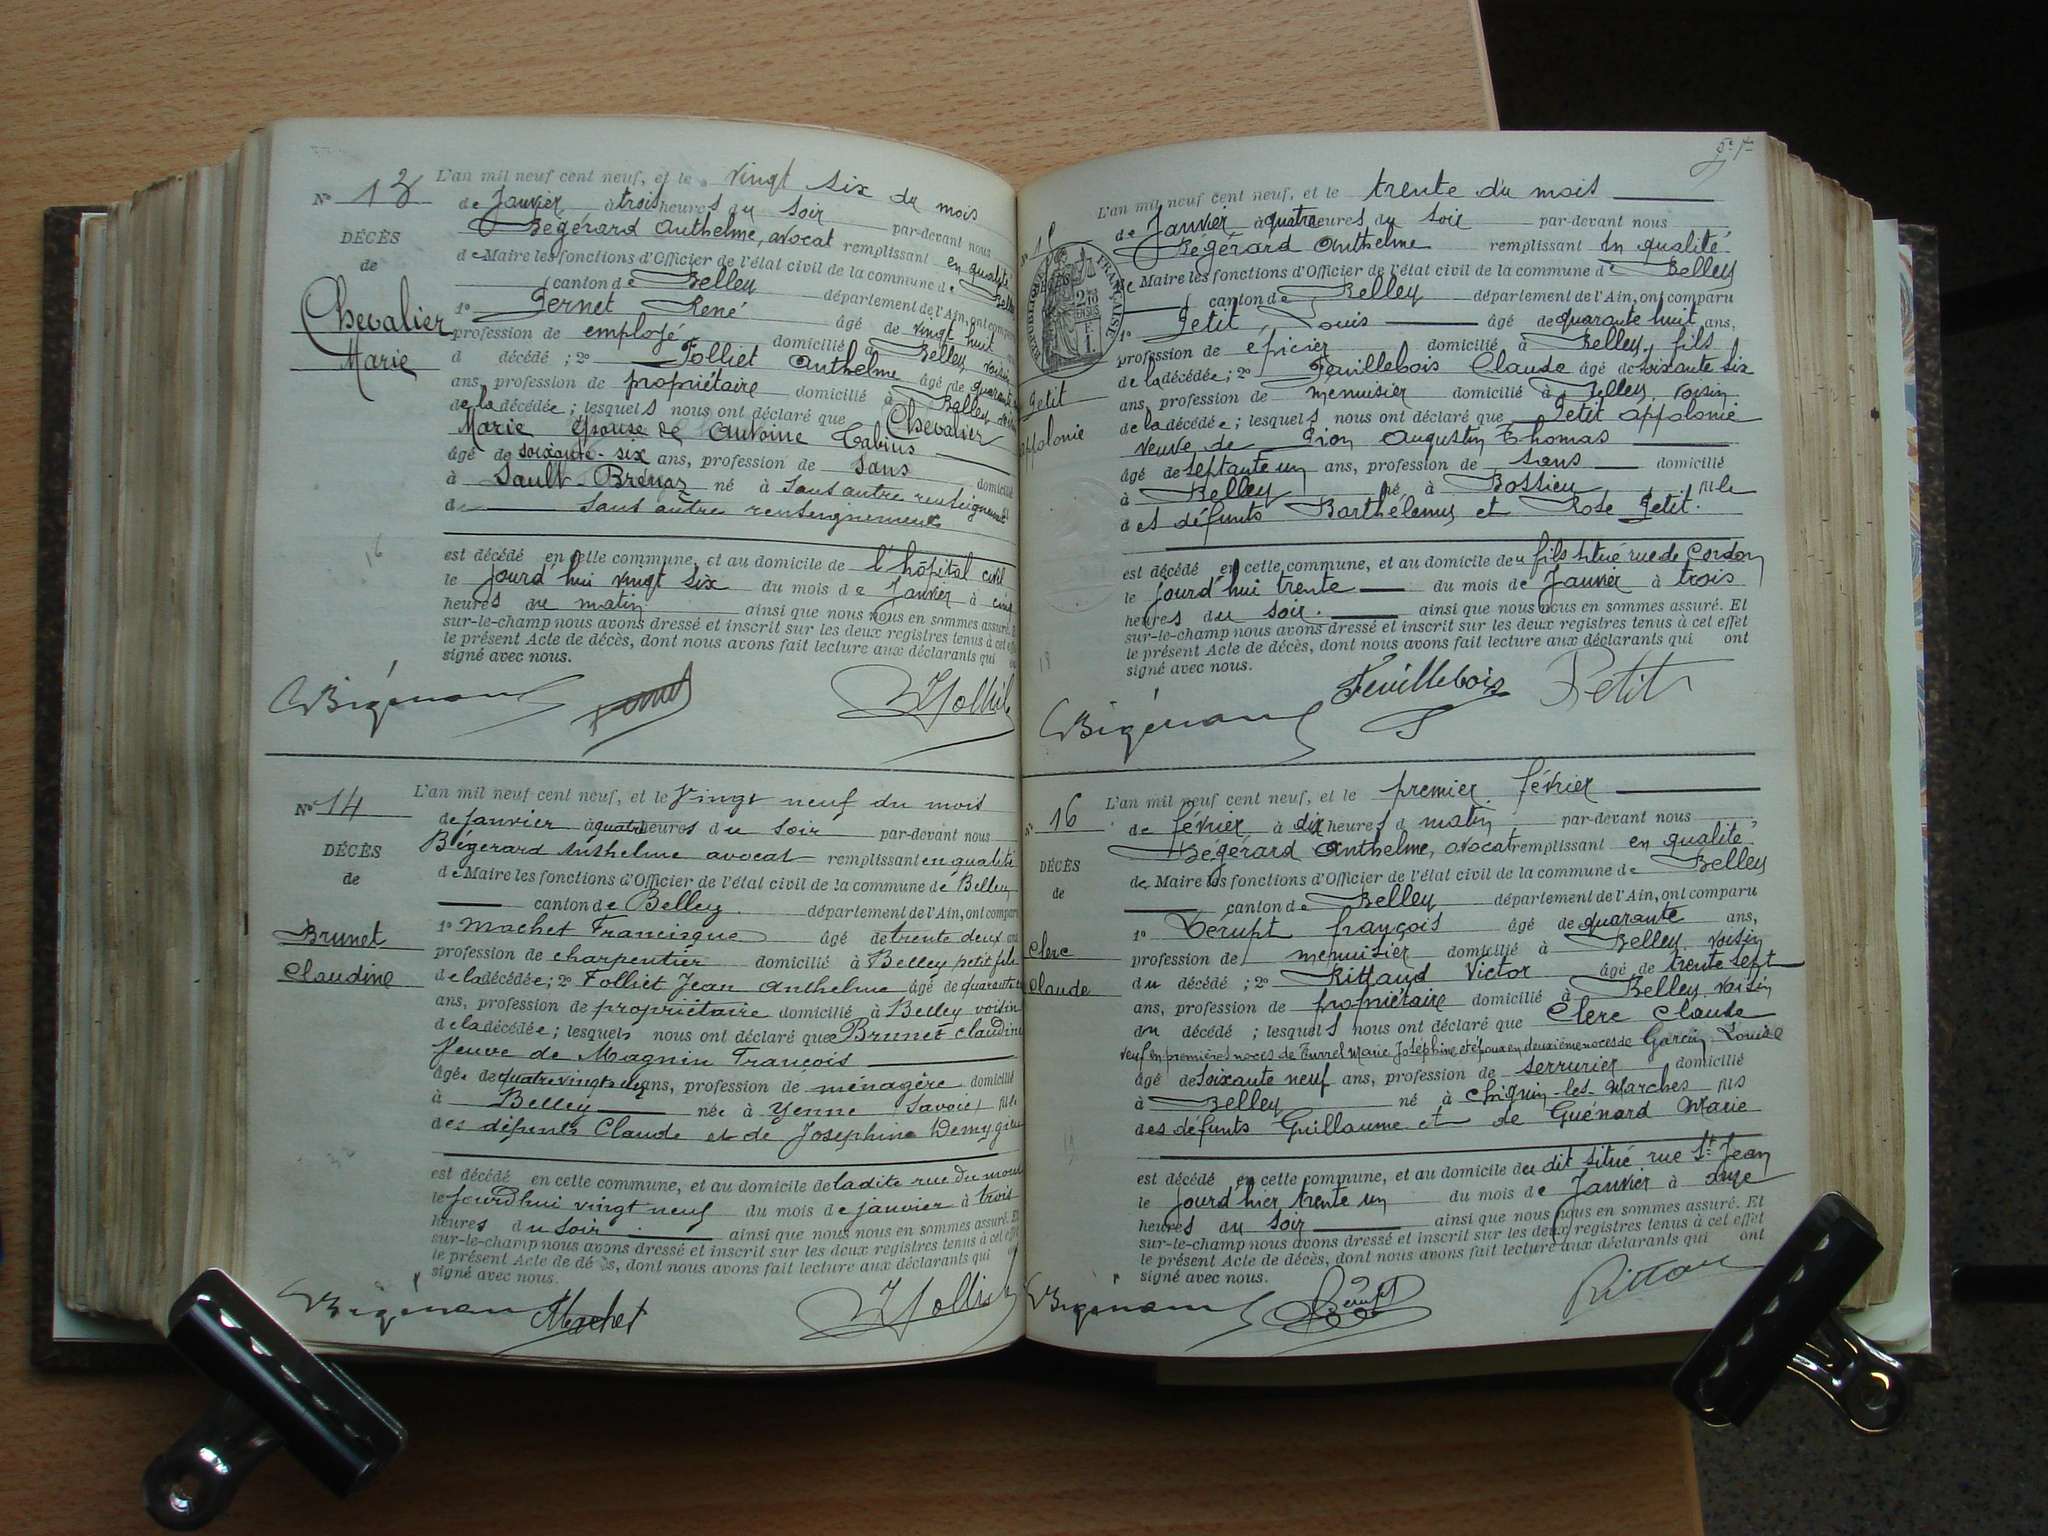 Nº 13
DÉCÈS
de
Chevalier
Marie
L'an mil neuf cent neuf, et le vingt six du mois
de Janvier à trois heures du soir par-devant nous
Bégérard Anthelme, avocat remplissant en qualité
de Maire les fonctions d'Officier de l'état civil de la commune de
canton de Belley département de l'Ain, ont comparu
1º Pernet René âgé de vingt huit
profession de employé domicilié à Belley, voisin
d décédé ; 2º Folliet Anthelme âgé de quarante
ans, profession de propriétaire domicilié à Belley
de la décédée ; lesquels nous ont déclaré que Chevalier
Marie Épouse de Antoine
âgé de soixante-six ans, profession de sans domicilié
à Sault Brénaz né à Sans autre renseignement
de sans autre renseignement
est décédé en cette commune, et au domicile de l'hôpital civil
le jourd'hui vingt six du mois de Janvier à cinq
heures du matin ainsi que nous nous en sommes assuré. Et
sur-le-champ nous avons dressé et inscrit sur les deux registres tenus à cet effet
le présent Acte de décès, dont nous avons fait lecture aux déclarants qui
signé avec nous.
Nº 14
DÉCÈS
de
Brunet
Claudine
L'an mil neuf cent neuf, et le Vingt neuf du mois
de janvier à quatre heures du soir par-devant nous
Bégérard Anthelme avocat remplissant en qualité
de Maire les fonctions d'Officier de l'état civil de la commune de Belley
canton de Belley département de l'Ain, ont comparu
1º Machet Francisque âgé de trente deux ans
profession de charpentier domicilié à Belley petit fils
de la décédée ; 2º Folliet Jean Anthelme âgé de quarante
ans, profession de propriétaire domicilié à Belley voisin
de la décédée ; lesquels nous ont déclaré que Brunet Claudine
Veuve de Magnin François
âgée de quatre vingt ans, profession de ménagère domicilié
à Belley née à Yenne (Savoie) fille
des défunts Claude et de Joséphine
est décédé en cette commune, et au domicile de ladite rue du
le jourd'hui vingt neuf du mois de janvier à trois
heures du soir ainsi que nous nous en sommes assuré. Et
sur-le-champ nous avons dressé et inscrit sur les deux registres tenus à cet effet
le présent Acte de décès, dont nous avons fait lecture aux déclarants qui
signé avec nous.
Machet
Petit
Appolonie
L'an mil neuf cent neuf, et le trente du mois
de Janvier à quatre heures du soir par-devant nous
Bégérard Anthelme remplissant en qualité
de Maire les fonctions d'Officier de l'état civil de la commune de Belley
canton de Belley département de l'Ain, ont comparu
1º Petit Louis âgé de quarante huit ans,
profession de épicier domicilié à Belley, fils
de la décédée ; 2º Feuillebois Claude âgé de soixante six
ans, profession de menuisier domicilié à Belley, voisin
de la décédée ; lesquels nous ont déclaré que Petit appolonie
veuve de Pion Augustin Thomas
âgé de septante un ans, profession de sans domicilié
à Belley né à Bossieu fille
des défunts Barthélemy et Rose Petit.
est décédé en cette commune, et au domicile du fils situé rue de Cordon
le jourd'hui trente du mois de Janvier à trois
heures du soir. ainsi que nous nous en sommes assuré. Et
sur-le-champ nous avons dressé et inscrit sur les deux registres tenus à cet effet
le présent Acte de décès, dont nous avons fait lecture aux déclarants qui ont
signé avec nous.
Feuillebois Petit
Nº 16
DÉCÈS
de
Clerc
Claude
L'an mil neuf cent neuf, et le premier février
de février à dix heures d matin par-devant nous
Bégérard Anthelme, avocat remplissant en qualité
de Maire les fonctions d'Officier de l'état civil de la commune de Belley
canton de Belley département de l'Ain, ont comparu
1º Dérupt françois âgé de quarante ans,
profession de menuisier domicilié à Belley voisin
du décédé ; 2º Rittaud Victor âgé de trente sept
ans, profession de propriétaire domicilié à Belley voisin
du décédé ; lesquels nous ont déclaré que Clerc Claude
veuf en premières noces de Turrel Marie Joséphine et époux en deuxième noces de Garcin Louise
âgé de soixante neuf ans, profession de serrurier domicilié
à Belley né à Chignin-les-Marches fils
des défunts Guillaume et de Guénard Marie
est décédé en cette commune, et au domicile du dit situé rue St Jean
le jourd'hier trente un du mois de Janvier à onze
heures du soir ainsi que nous nous en sommes assuré. Et
sur-le-champ nous avons dressé et inscrit sur les deux registres tenus à cet effet
le présent Acte de décès, dont nous avons fait lecture aux déclarants qui ont
signé avec nous.